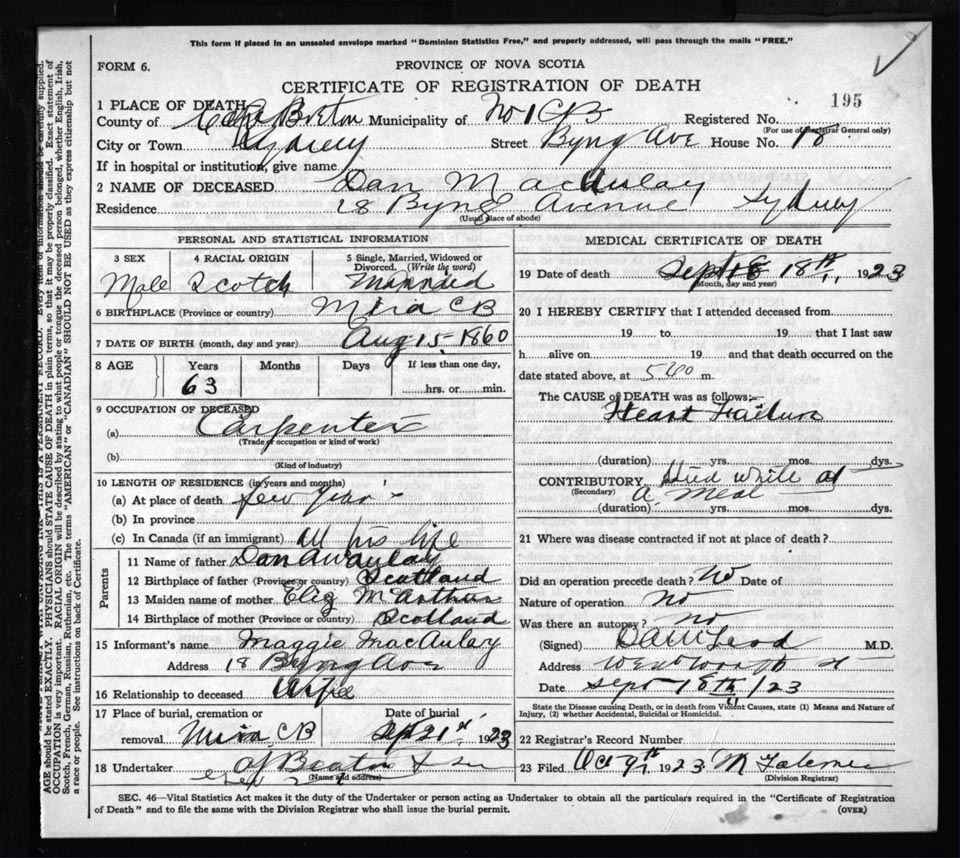 This form if placed in an unsealed envelope marked "Dominion Statistics Free," and properly addressed, will pass through the mails "FREE."
FORM 6.
PROVINCE OF NOVA SCOTIA
CERTIFICATE OF REGISTRATION OF DEATH
195
1 PLACE OF DEATH
County of Cape Breton Municipality of No 1 CB Registered No.
(For use of Registrar General only)
City or Town Sydney Street Byng Ave House No. 18
If in hospital or institution, give name
2 NAME OF DECEASED Dan MacAulay
Residence 18 Byng Avenue Sydney
(Usual place of abode)
PERSONAL AND STATISTICAL INFORMATION
3 SEX 4 RACIAL ORIGIN 5 Single, Married, Widowed or Divorced. (Write the word)
Male Scotch Married
6 BIRTHPLACE (Province or country) Mira CB
7 DATE OF BIRTH (month, day and year) Aug 15 1860
8 AGE Years Months Days If less than one day,
63 hrs. or min.
9 OCCUPATION OF DECEASED
(a) Carpenter
(Trade or occupation or kind of work)
(b)
(Kind of industry)
10 LENGTH OF RESIDENCE (in years and months)
(a) At place of death few years
(b) In province
(c) In Canada (if an immigrant) All his life
Parents
11 Name of father Dan
12 Birthplace of father (Province or country) Scotland
13 Maiden name of mother Eliz McArthur
14 Birthplace of mother (Province or country) Scotland
15 Informant's name Maggie MacAulay
Address 18 Byng Ave
16 Relationship to deceased Wife
17 Place of burial, cremation or Date of burial
removal Mira CB Sept 21st 1923
18 Undertaker Beaton & Son
(Name and address)
MEDICAL CERTIFICATE OF DEATH
19 Date of death Sept 18 18th 1923
(Month, day and year)
20 I HEREBY CERTIFY that I attended deceased from
19 to 19 that I last saw
h alive on 19 and that death occurred on the
date stated above, at 540 m.
The CAUSE of DEATH was as follows:—
Heart Failure
(duration) yrs. mos. dys.
CONTRIBUTORY Died while at
(Secondary) a meal
(duration) yrs. mos. dys.
21 Where was disease contracted if not at place of death?
Did an operation precede death? No Date of
Nature of operation no
Was there an autopsy? no
(Signed) McLeod M.D.
Address Wentworth St
Date Sept 18th /23
State the Disease causing Death, or in death from Violent Causes, state (1) Means and Nature of Injury, (2) whether Accidental, Suicidal or Homicidal.
22 Registrar's Record Number
23 Filed Oct 9th 1923
(Division Registrar)
SEC. 46—Vital Statistics Act makes it the duty of the Undertaker or person acting as Undertaker to obtain all the particulars required in the "Certificate of Registration
of Death" and to file the same with the Division Registrar who shall issue the burial permit. (OVER)
AGE should be stated EXACTLY. PHYSICIANS should STATE CAUSE OF DEATH in plain terms, so that it may be properly classified. Exact statement of
OCCUPATION is very important. RACIAL ORIGIN will be described by stating to what people or tongue the deceased person belonged, whether English, Irish,
Scotch, French, German, Russian, Ruthenian, etc. The terms "AMERICAN" or "CANADIAN" SHOULD NOT BE USED as they express citizenship but not
a race or people. See instructions on back of Certificate.